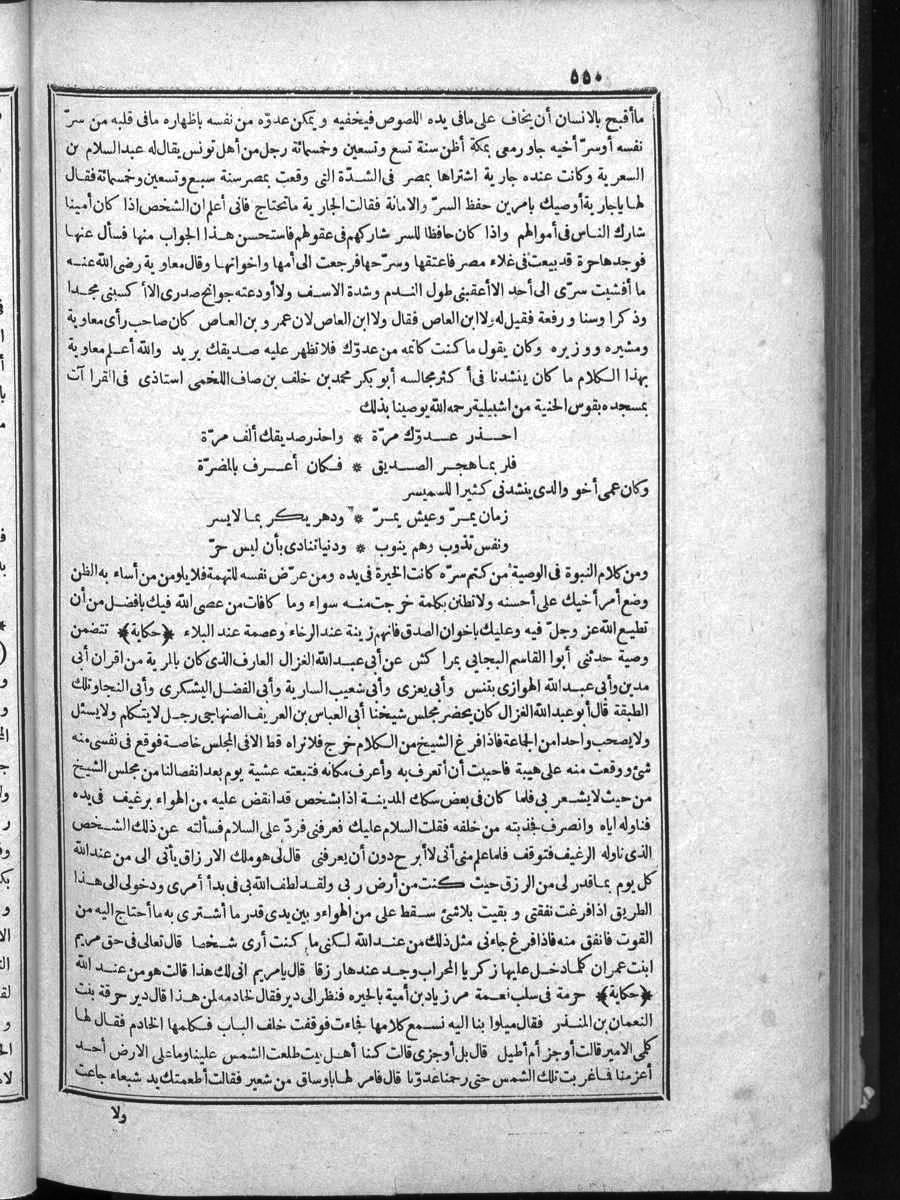 ٥٥٠
ما أقبح بالانسان أن يخاف على ما فى يده اللصوص فيخفيه ويمكن عدوّه من نفسه باظهاره ما فى قلبه من سرّ
نفسه أو سرّ أخيه جاورمعى بمكة أظن سنة تسع وتسعين وخمسمائة رجل من أهل تونس يقال له عبد السلام بن
السعرية وكانت عنده جارية اشتراها بمصر فى الشدّة التى وقعت بمصر سنة سبع وتسعين وخمسمائة فقال
لها يا جارية أوصيك بامرين حفظ السرّ والامانة فقالت الجارية ما تحتاج فانى أعلم ان الشخص اذا كان أمينا
شارك الناس فى أموالهم واذا كان حافظا للسر شاركهم فى عقولهم فاستحسن هذا الجواب منها فسأل عنها
فوجدها حرة قد بيعت فى غلاء مصر فاعتقها وسرّحها فرجعت الى أمها واخواتها وقال معاوية رضى الله عنه
ما أفشيت سرّى الى أحد الا أعقبنى طول الندم وشدة الاسف ولا أودعته جوانح صدرى الا أكسبنى مجدا
وذكرا وسنا ورفعة فقيل له ولا ابن العاص فقال ولا ابن العاص لان عمرو بن العاص كان صاحب رأى معاوية
ومشيره ووزيره وكان يقول ما كنت كاتمه من عدوّك فلا تظهر عليه صديقك يريد والله أعلم معاوية
بهذا الكلام ما كان ينشدنا فى أكثر مجالسه أبو بكر محمد بن خلف بن صاف اللخمى استاذى فى القرا آت
بمسجده بقوس الحنية من اشبيلية رحمه الله يوصينا بذلك
احذر عدوّك مرّة * واحذر صديقك ألف مرّة
فلربما هجر الصديق * فكان أعرف بالمضرّة
وكان عمى أخو والدى ينشدنى كثيرا للسميسر
زمان يمرّ وعيش يمرّ * ودهر يكر بما لا يسر
ونفس تذوب وهم ينوب * ودنيا تنادى بأن ليس حرّ
ومن كلام النبوة فى الوصية من كتم سرّه كانت الخيرة فى يده ومن عرّض نفسه للتهمة فلا يلومن من أساء به الظن
وضع أمر أخيك على أحسنه ولا تظنن بكلمة خرجت منه سواء وما كافات من عصى الله فيك بافضل من أن
تطيع الله عز وجلّ فيه وعليك باخوان الصدق فانهم زينة عند الرخاء وعصمة عند البلاء ﴿حكاية﴾ تتضمن
وصية حدثنى أبوا القاسم البجابى بمراكش عن أبى عبد الله الغزال العارف الذى كان بالمرية من اقران أبى
مدين وأبى عبد الله الهوازى بتنس وأبى يعزى وأبى شعيب السارية وأبى الفضل اليشكرى وأبى النجا وتلك
الطبقة قال أبو عبد الله الغزال كان يحضر مجلس شيخنا أبى العباس بن العريف الصنهاجى رجل لا يتكلم ولا يسئل
ولا يصحب واحدا من الجماعة فاذا فرغ الشيخ من الكلام خرج فلا نراه قط الا فى المجلس خاصة فوقع فى نفسى منه
شئ ووقعت منه على هيبة فاحببت أن أتعرف به وأعرف مكانه فتبعته عشية يوم بعد انفصالنا من مجلس الشيخ
من حيث لا يشعر بى فلما كان فى بعض سكك المدينة اذا بشخص قد انقض عليه من الهواء برغيف فى يده
فناوله اياه وانصرف فجذبته من خلفه فقلت السلام عليك فعرفنى فردّ على السلام فسألته عن ذلك الشخص
الذى ناوله الرغيف فتوقف فلما علم منى أنى لا أبرح دون أن يعرفنى قال لى هو ملك الارزاق يأتى الى من عند الله
كل يوم بما قدر لى من الرزق حيث كنت من أرض ربى ولقد لطف الله بى فى بدأ أمرى ودخولى الى هذا
الطريق اذا فرغت نفقتى وبقيت بلاشئ سقط على من الهواء وبين يدى قدر ما أشترى به ما أحتاج اليه من
القوت فانفق منه فاذا فرغ جاءنى مثل ذلك من عند الله لكنى ما كنت أرى شخصا قال تعالى فى حق مريم
ابنت عمران كلما دخل عليها زكريا المحراب وجد عندها رزقا قال يا مريم انى لك هذا قالت هو من عند الله
﴿حكاية﴾ حرمة فى سلب نعمة مر زياد بن أمية بالحيره فنظر الى دير فقال لخادمه لمن هذا قال دير حرقة بنت
النعمان بن المنذر فقال ميلوا بنا اليه نسمع كلامها فجاءت فوقفت خلف الباب فكلمها الخادم فقال لها
كلمى الامير قالت أوجز أم أطيل قال بل أوجزى قالت كنا أهل بيت طلعت الشمس علينا وما على الارض أحد
أعز منا فما غربت تلك الشمس حتى رحمنا عدوّنا قال فامر لها باوساق من شعير فقالت أطعمتك يد شبعاء جاعت
ولا